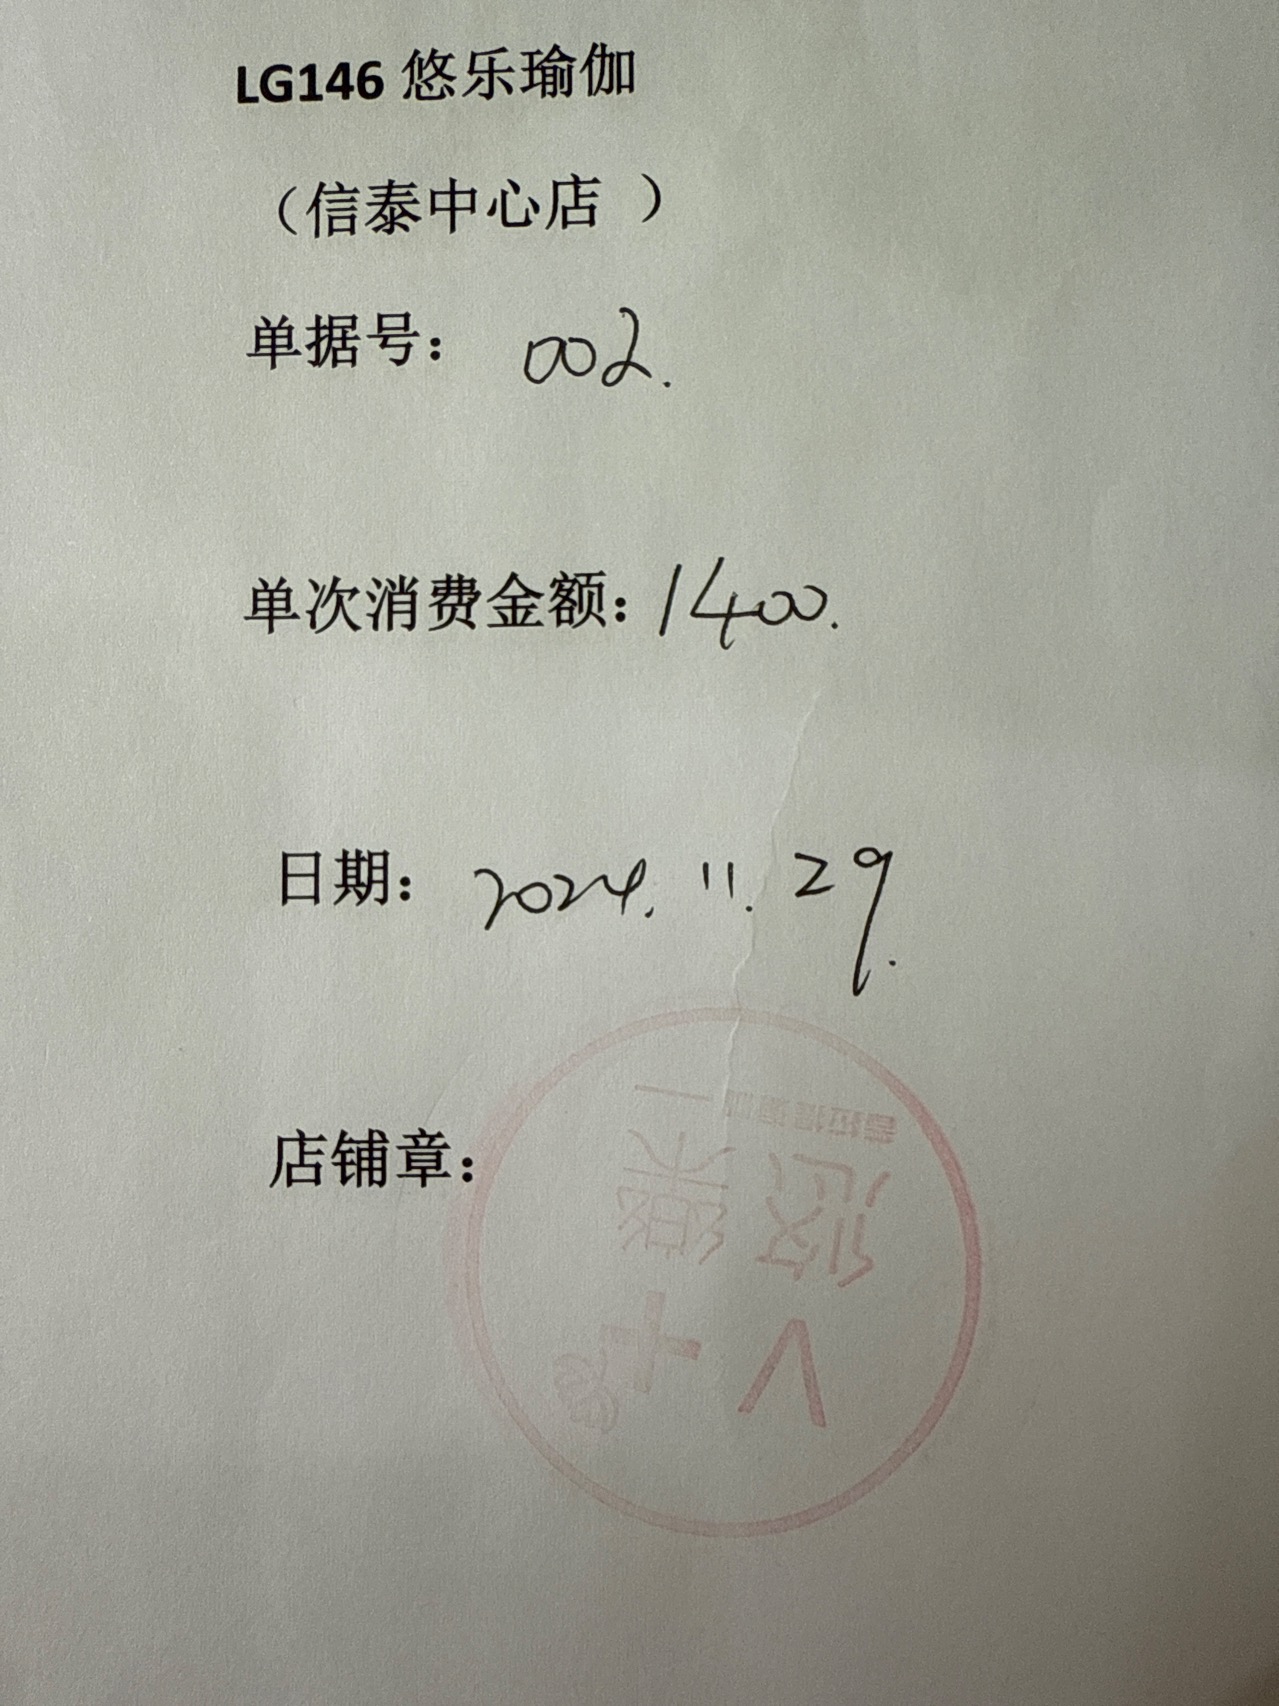 LG146 悠乐瑜伽
（信泰中心店 ）
单据号： 002.
单次消费金额：1400.
日期： 2024. 11. 29.
店铺章：
悠樂
V+